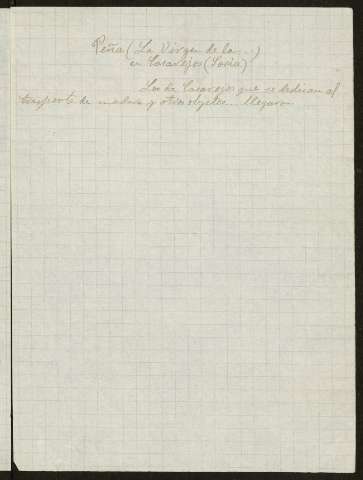 Peña (La Virgen de la ...)
en Casarejos (Soria)
Los de Casarejos que se dedican al
trasporte de madera y otros objetos... llegaron